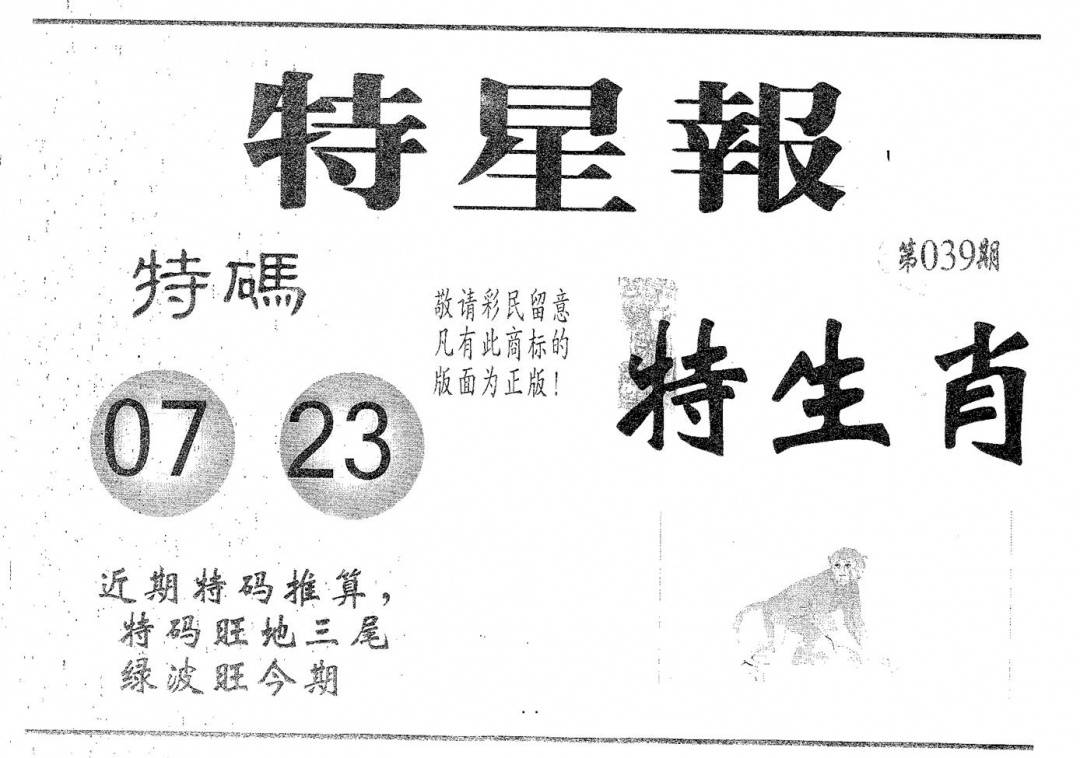 特星報
第039期
特碼
敬请彩民留意
凡有此商标的
版面为正版!
特生肖
07 23
近期特码推算,
特码旺地三尾
绿波旺今期